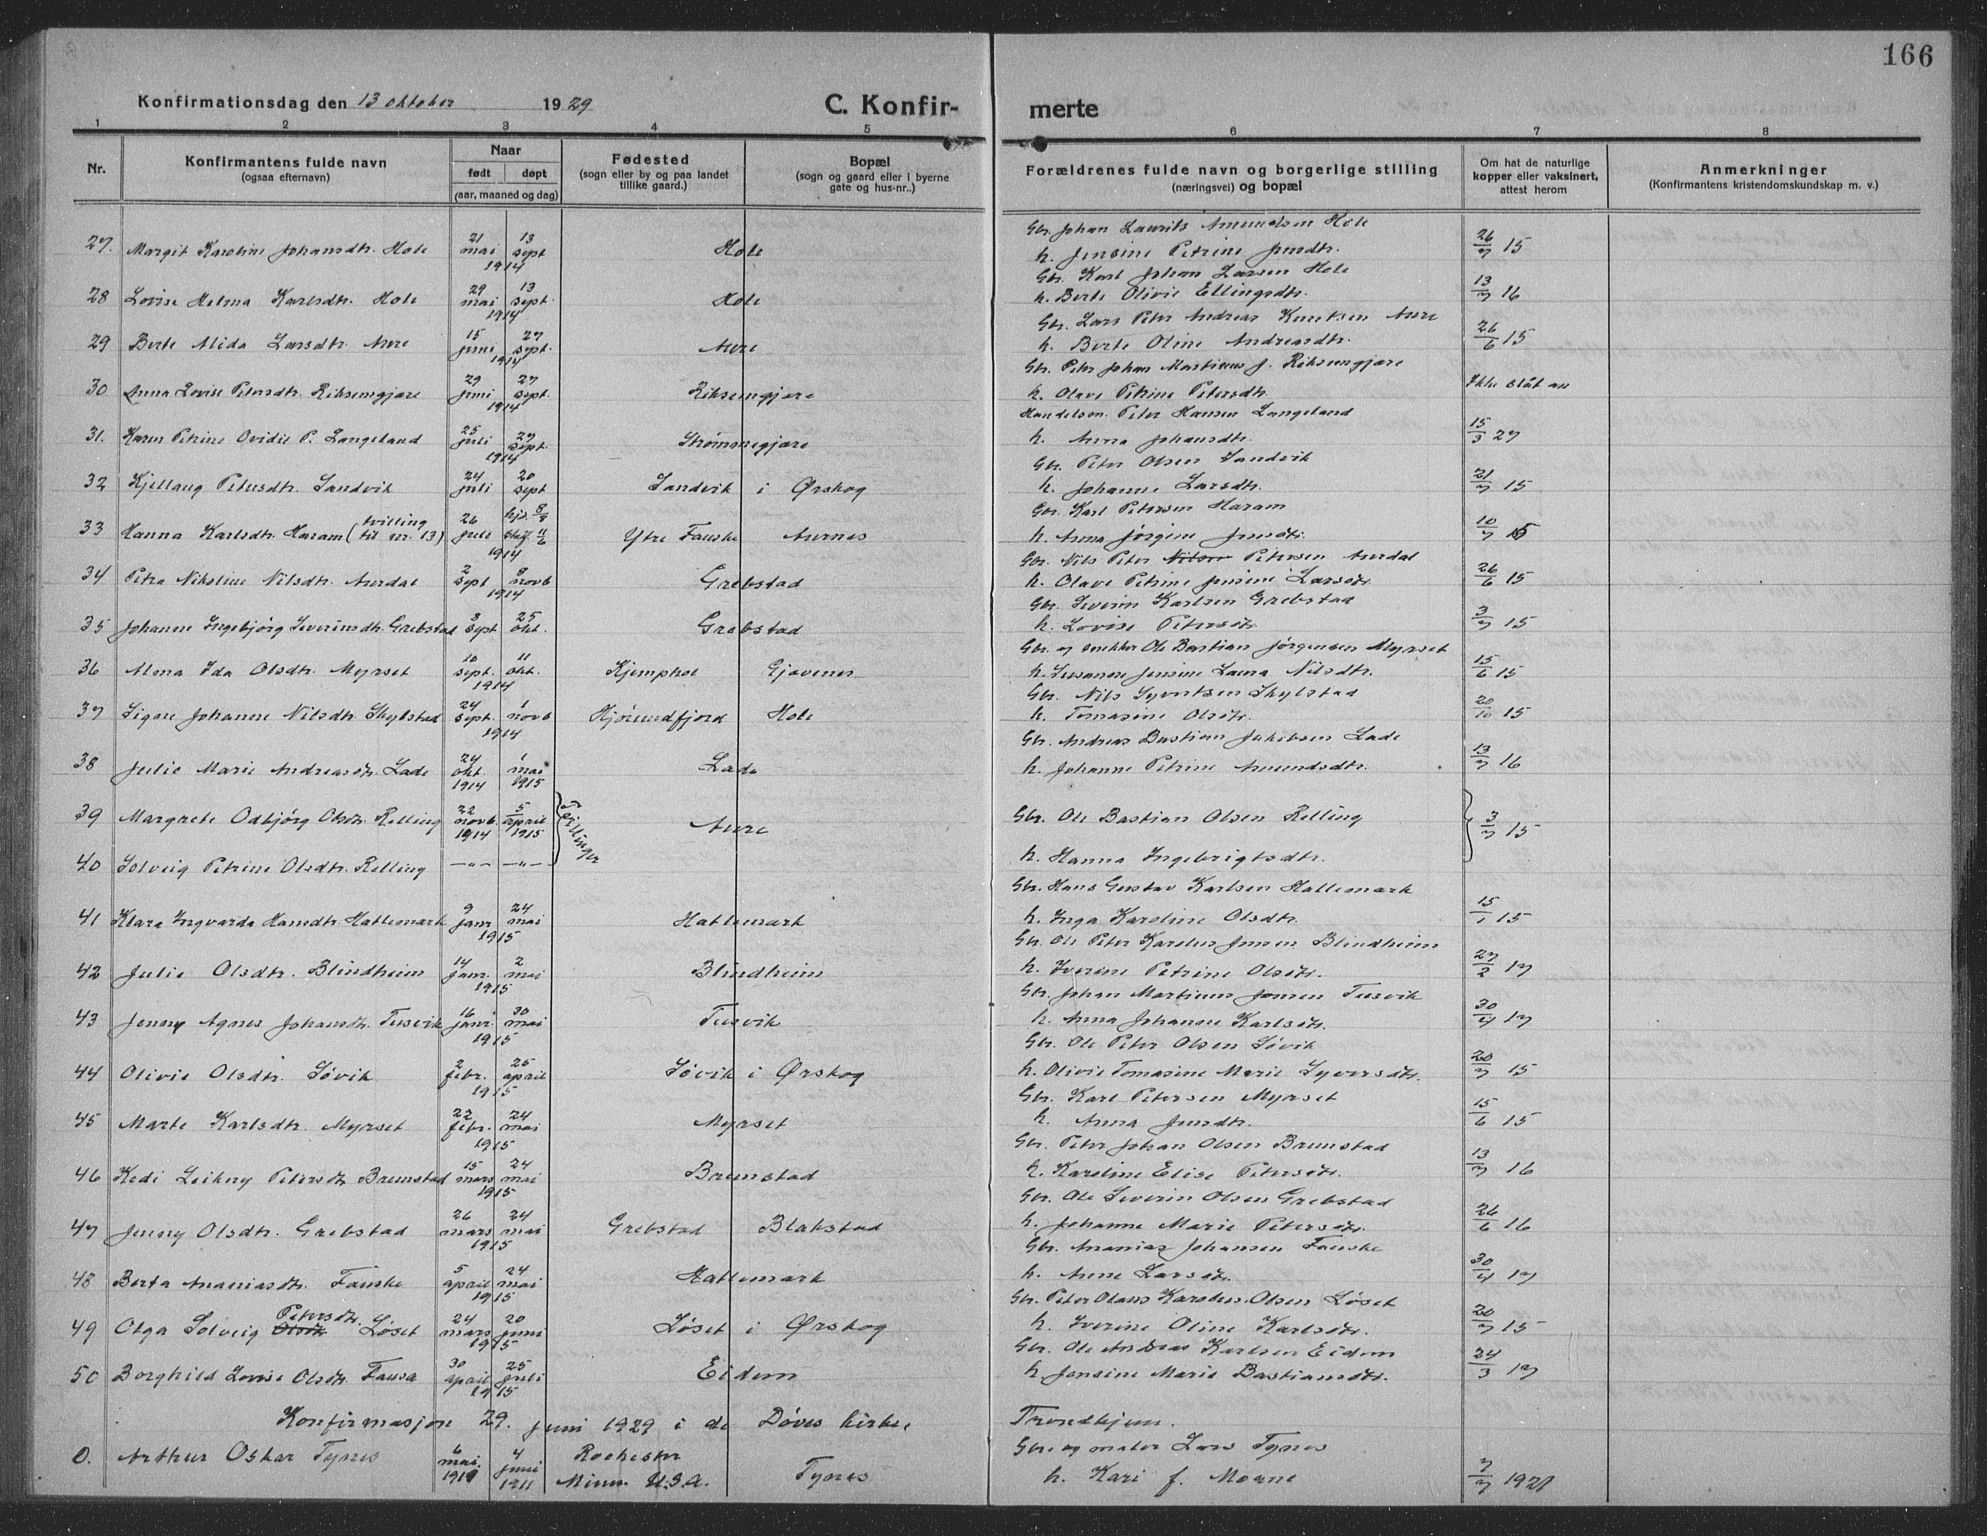 166
Konfirmationsdag den 13 oktober 1929 C. Konfir- merte
1 2 3 4 5 6 7 8
Nr. Konfirmantens fulde navn (ogsaa efternavn) Naar født døpt (aar, maaned og dag) Fødested (sogn eller by og paa landet tillike gaard.) Bopæl (sogn og gaard eller i byerne gate og hus-nr..) Forældrenes fulde navn og borgerlige stilling (næringsvei) og bopæl Om hat de naturlige kopper eller vaksinert, attest herom Anmerkninger (Konfirmantens kristendomskundskap m. v.)
27. Margit Karoline Johansdtr. Hole 21 mai 13 sept 1914 Hole Gbr. Johan Laurits Amundsen Hole h. Jensine Petrine Jensdtr. 26/7 15
28 Lovise Helma Karlsdtr. Hole 29 mai 13 sept. 1914 Hole Gbr. Karl Johan Larsen Hole h. Berte Olivie Ellingsdtr. 13/7 16
29 Berte Alida Larsdtr. Aure 15 juni 27 sept. 1914 Aure Gbr. Lars Peter Andreas Knutsen Aure h. Berte Oline Andreasdtr. 26/6 15
30 Anna Lovise Petersdtr. Riksemgjære 29 juni 27 sept. 1914 Riksemgjære Gbr. Peter Johan Martinus J. Riksemgjære h. Olave Petrine Petersdtr. Ikke slåt an
31. Karen Petrine Ovidie P. Langeland 25 juli 27 sept. 1914 Strømmegjære Handelsm. Peter Hansen Langeland h. Anna Johansdtr. 15/3 27
32 Kjellaug Petersdtr. Sandvik 24 juli 20 sept 1914 Sandvik i Ørskog Gbr. Peter Olsen Sandvik h. Johanne Larsdtr. 21/7 15
33 Hanna Karlsdtr. Haram (tvilling til nr. 13) 26 juli hjd. 8/8 1914 Ytre Fauske Aurnes Gbr. Karl Petersen Haram h. Anna Jørgine Jensdtr. 10/7 15
34 Petra Nikoline Nilsdtr. Aurdal 2 sept 8 novb 1914 Grebstad Gbr. Nils Peter Nilsen Petersen Aurdal h. Olave Petrine Jensine Larsdtr. 26/6 15
35 Johanne Ingebjørg Severinsdtr. Grebstad 3 sept 25 okt. Grebstad Gbr. Severin Karlsen Grebstad h. Lovise Petersdtr. 3/7 15
36 Alma Ida Olsdtr. Myrset 10 sept. 11 okt. 1914 Kjemphol Gjævenes Gbr. og snekker Ole Bastian Jørgensen Myrset h. Susanne Jensine Laura Nilsdtr. 15/6 15
37 Signe Johanne Nilsdtr. Skylstad 24 sept. 1 novb 1914 Hjørundfjord Hole Gbr. Nils Syvertsen Skylstad h. Tomasine Olsdtr. 20/10 15
38 Julie Marie Andreasdtr. Lade 24 okt. 1914 1 mai 1915 Lade Gbr. Andreas Bastian Jakobsen Lade h. Johanne Petrine Amundsdtr. 13/7 16
39 Margrete Odbjørg Olsdtr. Relling 22 novb 1914 5 april 1915 Tvillinger Aure Gbr. Ole Bastian Olsen Relling 3/7 15
40 Solveig Petrine Olsdtr. Relling —"— —"— h. Hanna Ingebrigtsdtr.
41 Klara Ingvarda Hansdtr. Hattemark 9 janr 24 mai 1915 Hattemark Gbr. Hans Gustav Karlsen Hattemark h. Inga Karoline Olsdtr. 15/1 15
42 Julie Olsdtr. Blindheim 14 janr. 2 mai 1915 Blindheim Gbr. Ole Peter Karolus Jensen Blindheim h. Iverine Petrine Olsdtr. 27/2 17
43 Jenny Agnes Johansdtr. Tusvik 16 janr. 30 mai 1915 Tusvik Gbr. Johan Martinus Jonsen Tusvik h. Anna Johanne Karlsdtr. 30/4 17
44 Olivie Olsdtr. Søvik 2 febr. 25 april 1915 Søvik i Ørskog Gbr. Ole Peter Olsen Søvik h. Olivie Tomasine Marie Syversdtr. 20/7 15
45 Marte Karlsdtr. Myrset 22 febr. 24 mai 1915 Myrset Gbr. Karl Petersen Myrset h. Anna Jensdtr. 15/6 15
46 Hedi Leikny Petersdtr. Brunstad 15 mars 24 mai 1915 Brunstad Gbr. Peter Johan Olsen Brunstad h. Karoline Elise Petersdtr. 13/7 16
47 Jenny Olsdtr. Grebstad 26 mars 24 mai 1915 Grebstad Blakstad Gbr. Ole Severin Olsen Grebstad h. Johanne Marie Petersdtr. 26/6 16
48 Berta Ananiasdtr. Fauske 5 april 24 mai 1915 Hattemark Gbr. Ananias Johansen Fauske h. Anne Larsdtr. 30/4 17
49 Olga Solveig Olsdtr. Petersdtr. Løset 24 mars 20 juni 1915 Løset i Ørskog Gbr. Peter Olaus Karolus Olsen Løset h. Iverine Oline Karlsdtr. 20/7 15
50 Borghild Lovise Olsdtr. Fausa 30 april 25 juli 1915 Eidem Gbr. Ole Andreas Karlsen Eidem h. Jensine Marie Bastiansdtr. 24/3 17
Konfirmasjon 29. juni 1929 i de Døves kirke, Trondhjem.
O. Arthur Oskar Tynes 6 mai. 4 juni 1911 Rochester Minn. U.S.A. Tynes Gbr. og maler Lars Tynes h. Kari f. Moane 7/7 1921